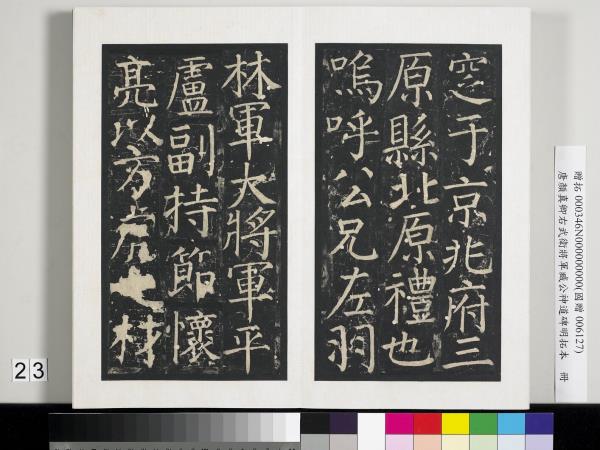 窆于京兆府三
原縣北原禮也
嗚呼公兄左羽
林軍大將軍平
盧副持節懷
亮以方虎之材
贈拓 000346N000000000(國贈 006127)
唐顏真卿右武衛將軍臧公神道碑明拓本 冊
23